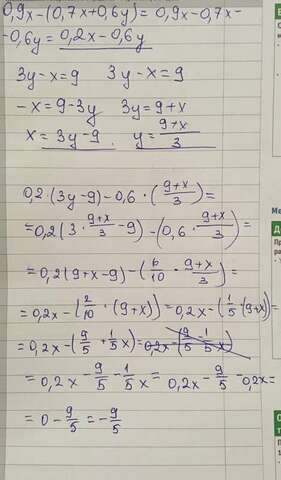 0,9x-(0,7x+0,6y)=0,9x-0,7x-
-0,6y=0,2x-0,6y
3y-x=9 3y-x=9
-x=9-3y 3y=9+x
x=3y-9. y=\frac{9+x}{3}
0,2(3y-9)-0,6·(\frac{9+x}{3})=
=0,2(3·\frac{9+x}{3}-9)-(0,6·\frac{9+x}{3})=
=0,2(9+x-9)-(\frac{6}{10}·\frac{9+x}{3})=
=0,2x-(\frac{2}{10}·(9+x))=0,2x-(\frac{1}{5}·(9+x))=
=0,2x-(\frac{9}{5}+\frac{1}{5}x)=
=0,2x-\frac{9}{5}-\frac{1}{5}x=0,2x-\frac{9}{5}-0,2x=
=0-\frac{9}{5}=-\frac{9}{5}